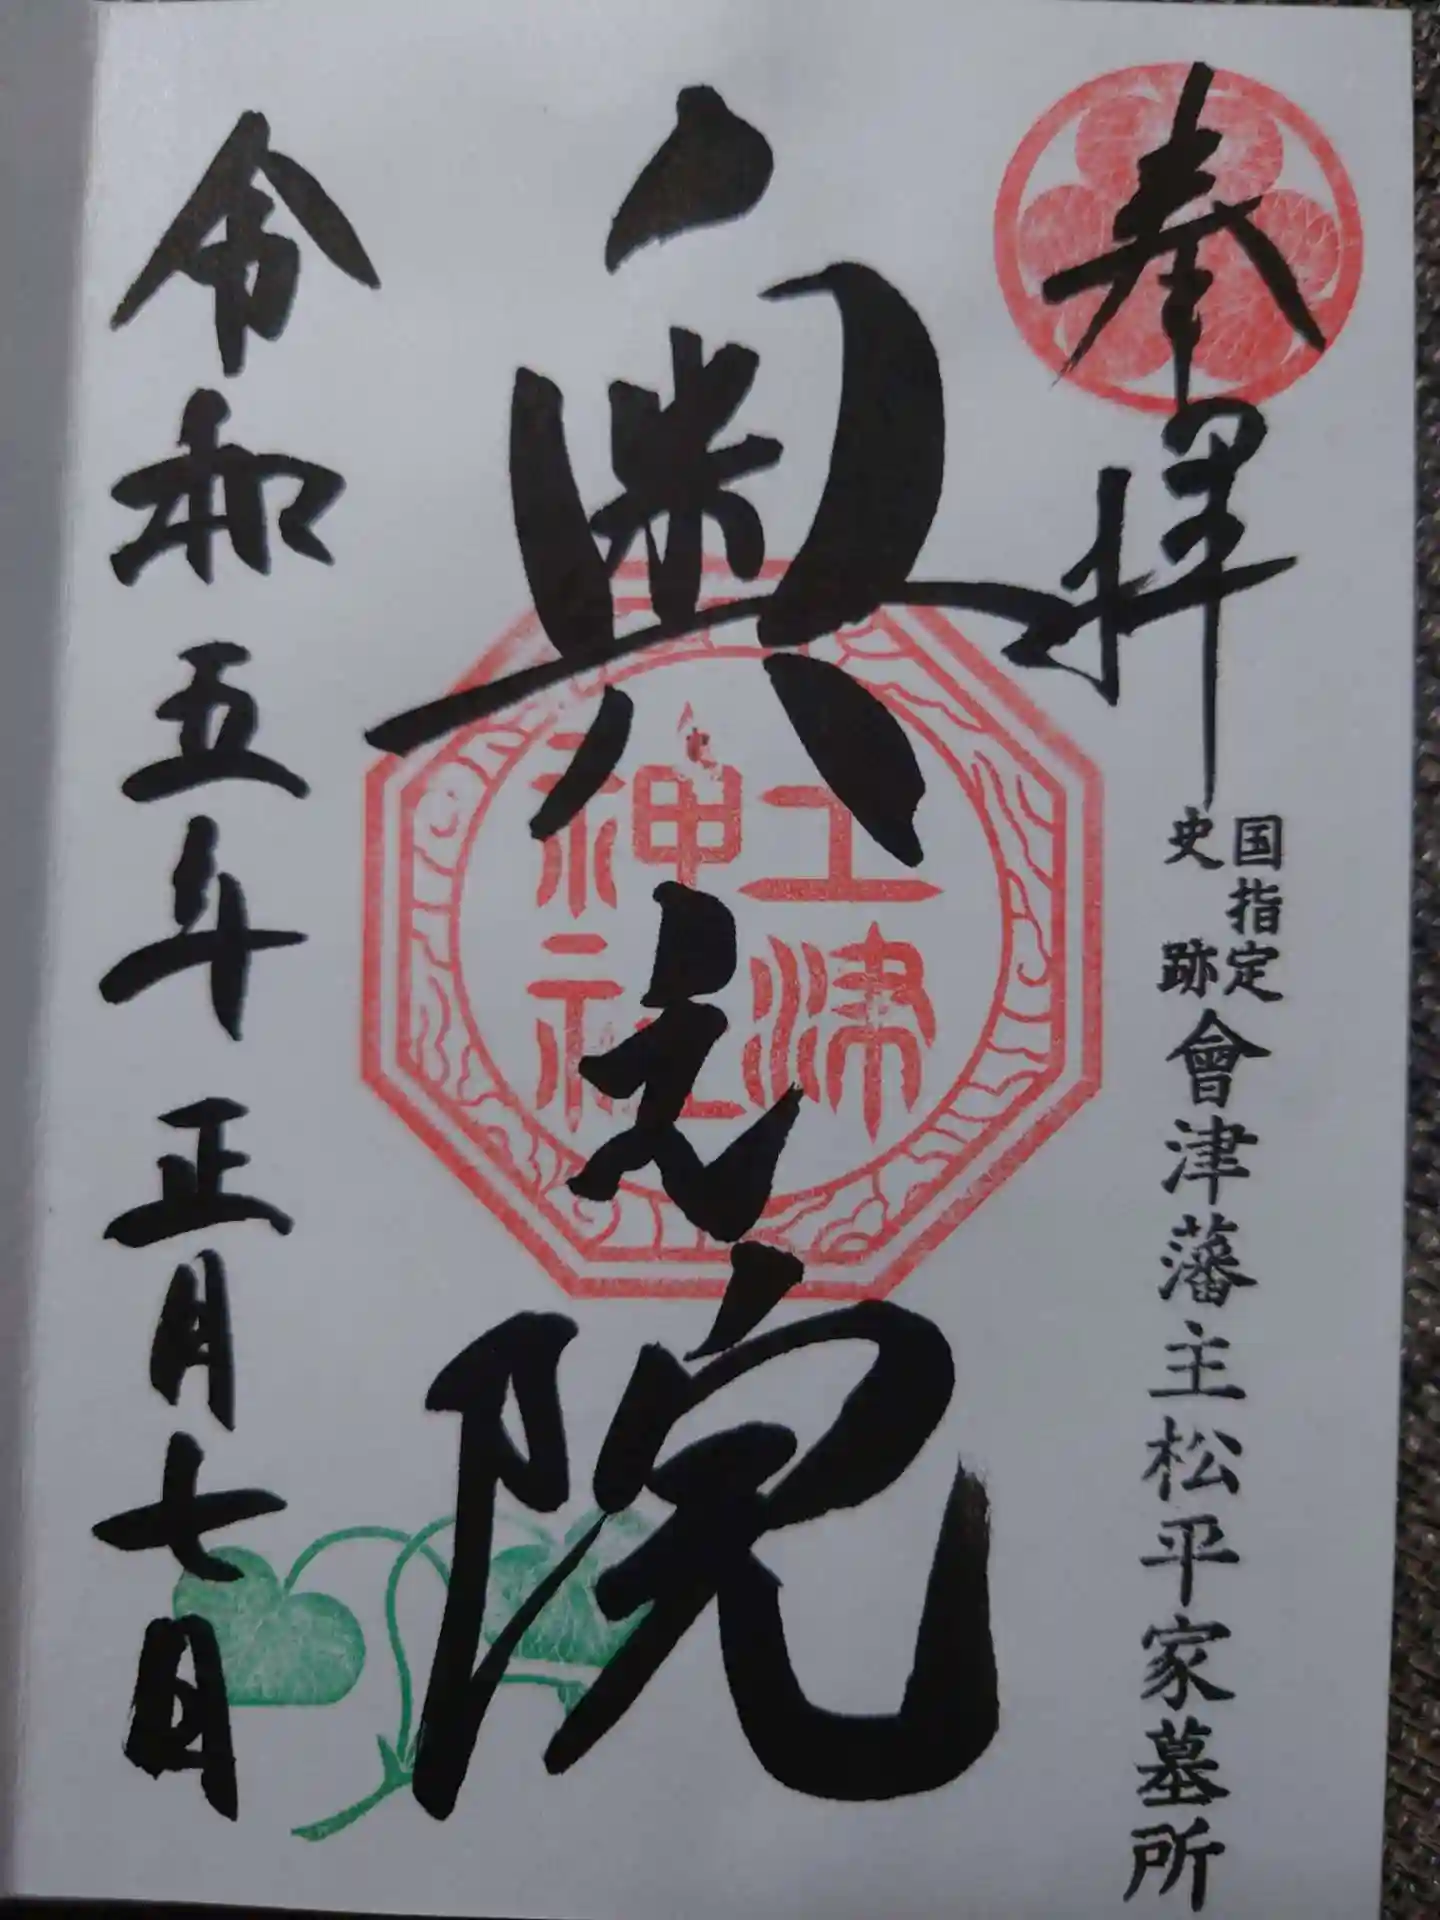 奉拝
国指定
史跡
會津藩主松平家墓所
奧之院
土津
神社
令和五年正月七日